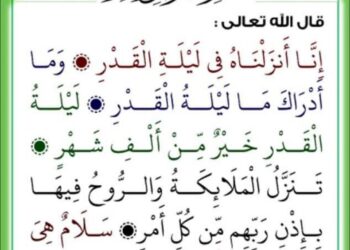 قال الله تعالى :
إِنَّا أَنزَلْنَاهُ فِي لَيْلَةِ الْقَدْرِ ۞ وَمَا
أَدْرَاكَ مَا لَيْلَةُ الْقَدْرِ ۞ لَيْلَةُ
الْقَدْرِ خَيْرٌ مِّنْ أَلْفِ شَهْرٍ ۞
تَنَزَّلُ الْمَلَائِكَةُ وَالرُّوحُ فِيهَا
بِإِذْنِ رَبِّهِم مِّن كُلِّ أَمْرٍ ۞ سَلَامٌ هِيَ